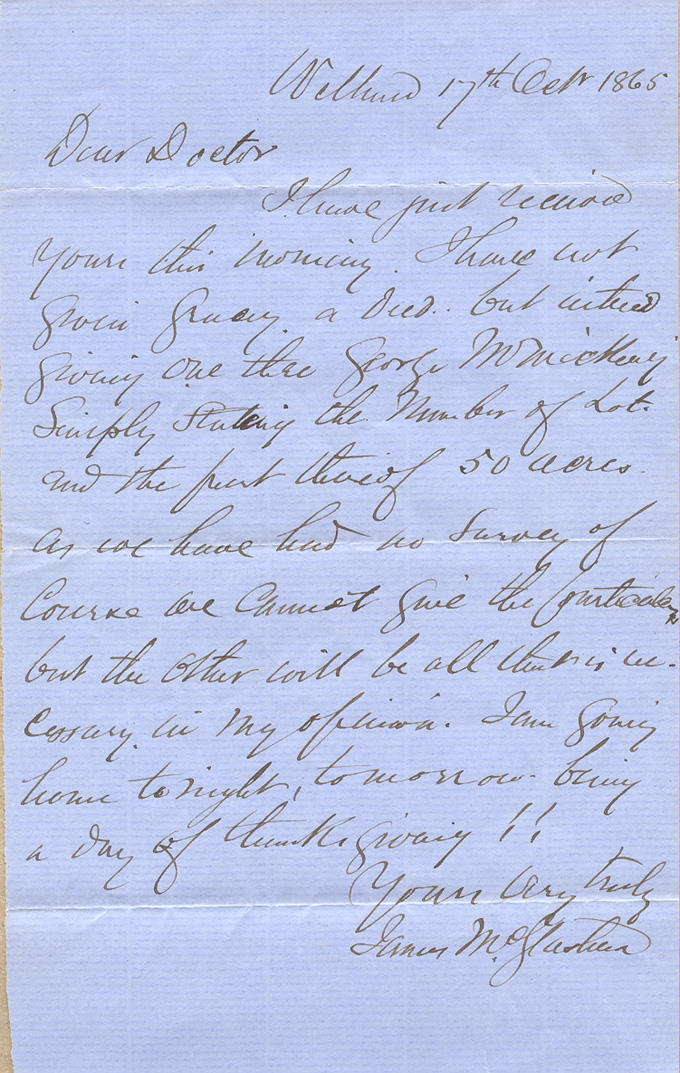 Welland 17th Octr 1865
Dear Doctor
I have just received
yours this morning. I have not
given Gracey a Deed.. but intend
giving one thro George
Simply Stating the Number of Lot.
and the part thereof 50 acres.
as we have had no Survey of
Course we Cannot give the particulars
but the Other will be all that is ne-
cessary in my opinion. I am going
home tonight, tomorrow being
a day of thanksgiving !!
Yours very truly
James McGlashan